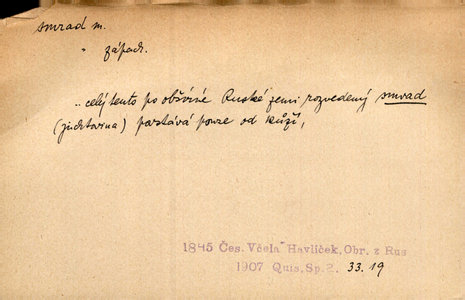 smrad m.
" západ.
.. celý tento po obšírné Ruské zemi rozvedený smrad
(juchtovina) pastává pouze od kůží,
1845 Čes. Včela Havlíček, Obr. z Rus
1907 Quis, Sp. 2. 33.19